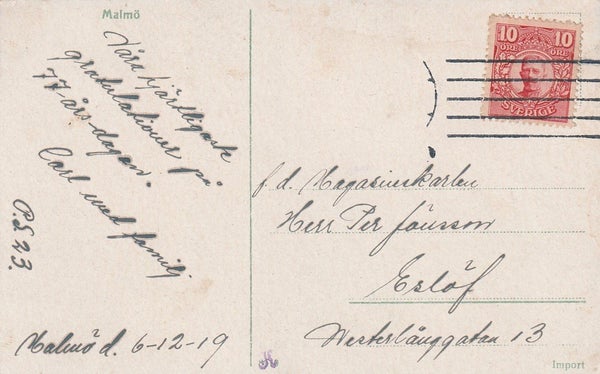 Malmö
Våra hjärtligaste
gratulationer på
77 års-dagen.
Carl med familj
P.S. 23.
Malmö d. 6-12-19
10 10
ÖRE ÖRE
SVERIGE
f. d. Magasinskarlen
Herr Per Jönsson
Eslöf
Westerlånggatan 13
Import